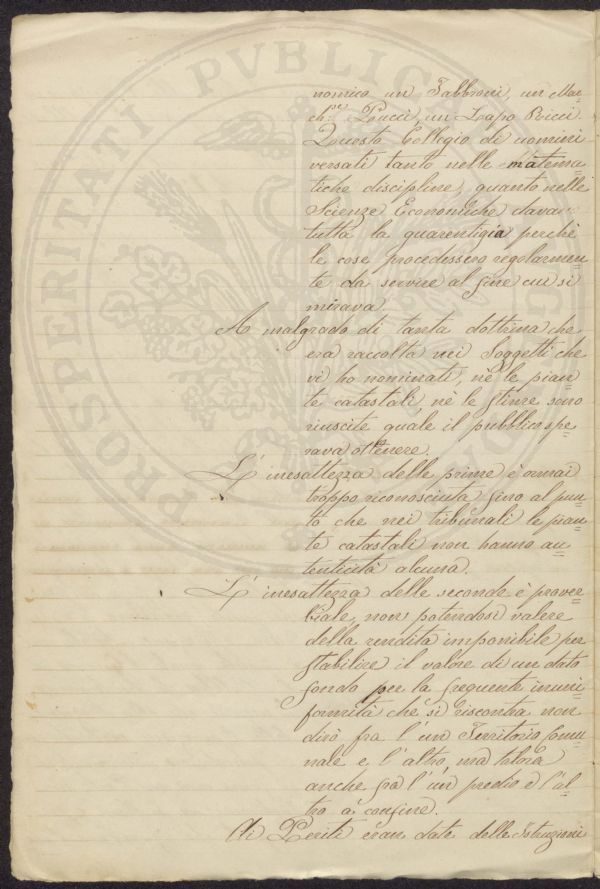 nomico un Fabbroni, un Mar=
ch.se Pucci, un Lapo Ricci.
Questo Collegio di uomini
versati tanto nelle matema=
tiche discipline, quanto nelle
Scienze Economiche dava
tutta la guarentigia perchè
le cose procedessero regolarmen=
te da servire al fine cui si
mirava.
A malgrado di tanta dottrina che
era raccolta nei Soggetti che
vi ho nominati, nè le pian=
te catastali nè le stime sono
riuscite quale il pubblico spe=
rava ottenere.
L' inesattezza delle prime è ormai
troppo riconosciuta fino al pun=
to che nei tribunali le pian=
te catastali non hanno au=
tenticità alcuna.
L' inesattezza delle seconde è prover=
biale, non potendosi valere
della rendita imponibile per
stabilire il valore di un dato
fondo per la frequente inuni=
formità che si riscontra non
dirò fra l' un Territorio Comu=
nale e l' altro, ma talora
anche fra l' un predio e l' al=
tro a confine.
Ai Periti eran date delle Istruzioni
PROSPERITATI PVBLIC